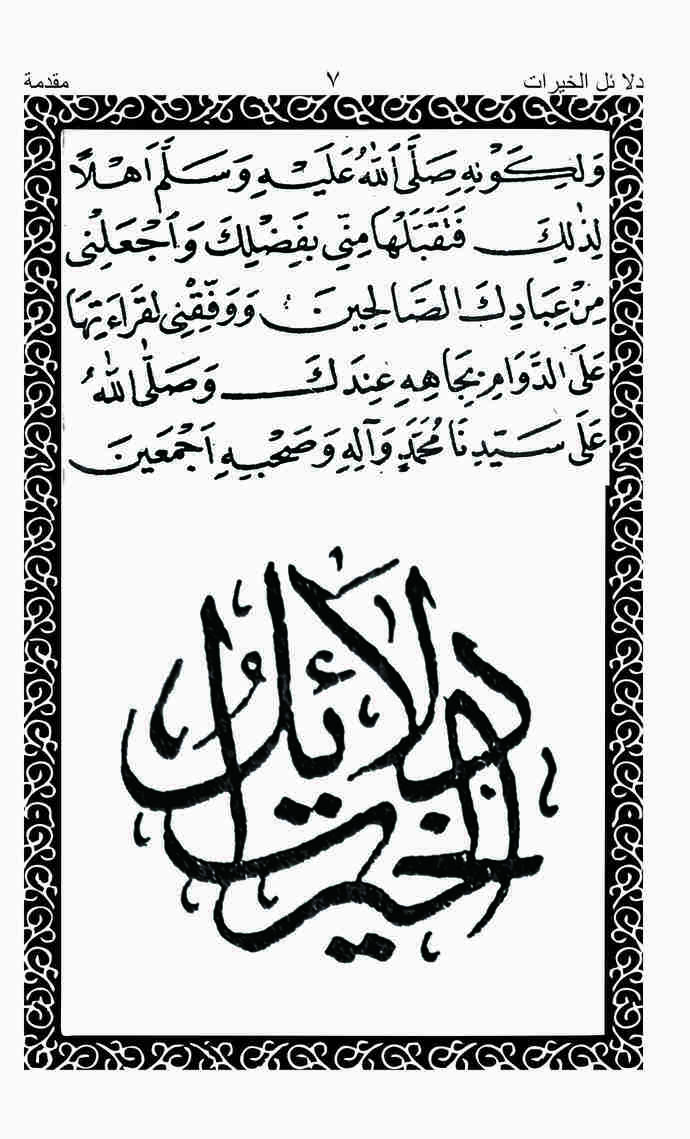 دلائل الخيرات ٧ مقدمة
وَلِكَوْنِهِ صَلَّى اللّٰهُ عَلَيْهِ وَسَلَّمَ اَهْلاً
لِذٰلِكَ فَتَقَبَّلْهَا مِنِّي بِفَضْلِكَ وَاجْعَلْنِي
مِنْ عِبَادِكَ الصَّالِحِينَ وَوَفِّقْنِي لِقِرَاءَتِهَا
عَلَى الدَّوَامِ بِجَاهِهِ عِنْدَكَ وَصَلَّى اللّٰهُ
عَلَى سَيِّدِنَا مُحَمَّدٍ وَآلِهِ وَصَحْبِهِ اَجْمَعِينَ
دلائل الخيرات